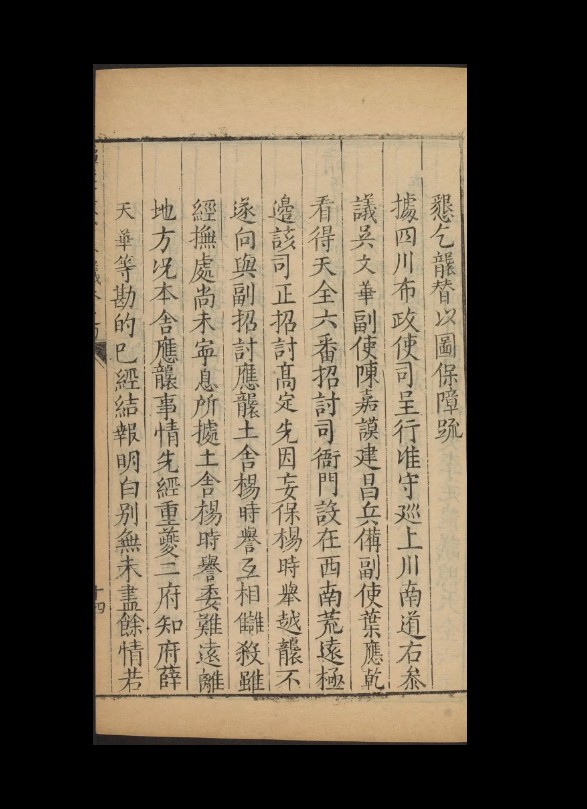 懇乞襲替以圖保障疏
據四川布政使司呈行准守廵上川南道右叅
議吳文華副使陳嘉謨建昌兵偹副使葉應乾
看得天全六番招討司衙門設在西南荒遠極
邉該司正招討髙定先因妄保楊時舉越襲不
遂向與副招討應襲土舎楊時譽互相讎殺雖
經撫處尚未寜息所據土舎楊時譽委難遠離
地方况本舎應襲事情先經重夔二府知府薛
天華等勘的已經結報明白别無未盡餘情若
十四